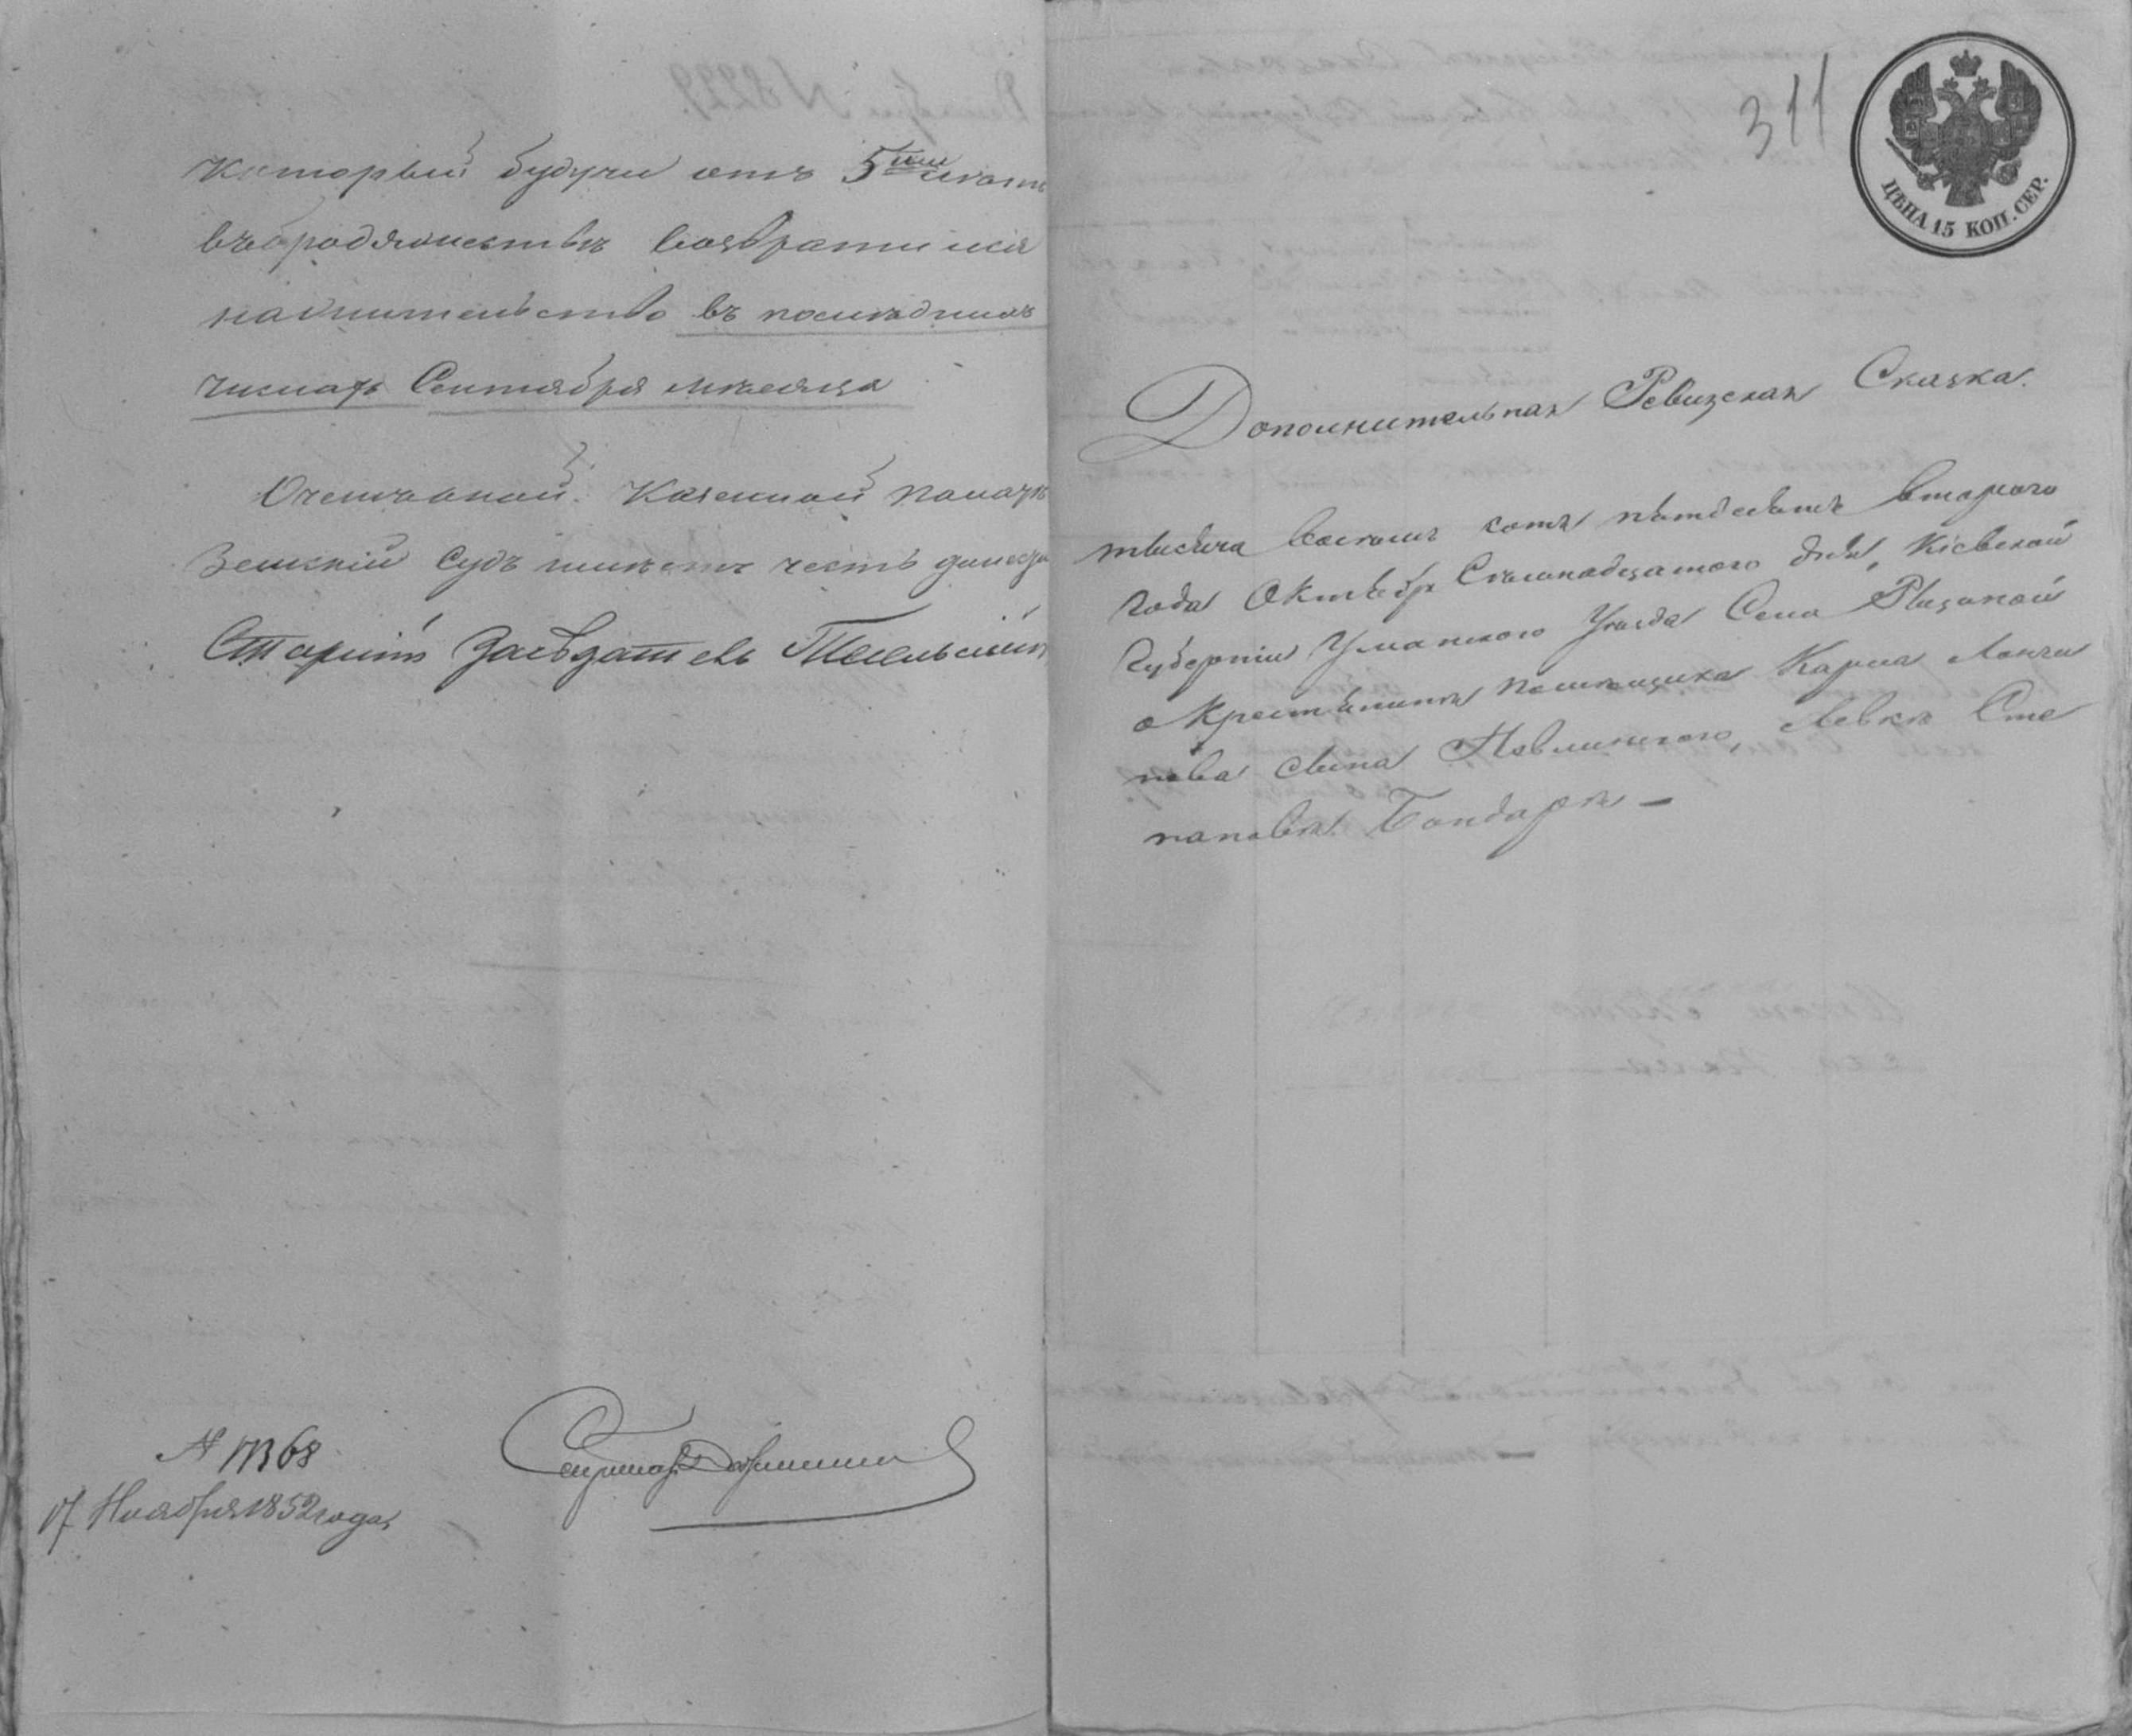 который будучи отъ 5ти летъ
въ бродяжествѣ возвратился
на жительство въ последнихъ
числахъ Сентября месяца
О чемъ оной Казенной Палатѣ
Земский Судъ имѣетъ честь донести
Старший Заседатель
N 17368
17 Ноября 1852 года,
Секретарь
311
ЦѢНА 15 КОП. СЕР.
Дополнительная Ревизская Сказка.
тысяча восемь сотъ пятдесятъ втораго
года Октября Семнадцатого дня, Кіевской
Губерніи Уманского Уезда Села Рыжаной
о Крестьянинѣ помещика Карла
сына Павлинского, Левкѣ Сте
пановѣ Бондарѣ —